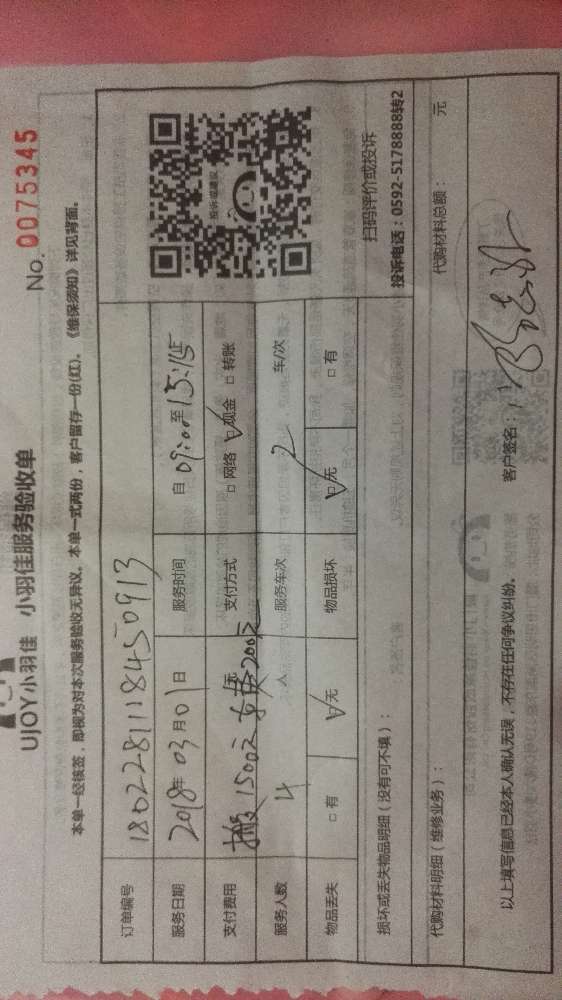 UJOY小羽佳 小羽佳服务验收单
No. 0075345
本单一经核签，即视为对本次服务验收无异议。本单一式两份，客户留存一份(红)。《维保须知》详见背面。
订单编号 1802281118450913
服务日期 2018年03月01日 服务时间 自09:00至15:15
支付费用 搬1500元 200元 元 支付方式 □网络 ☑现金 □转账
服务人数 4人 服务车次 2车/次
物品丢失 □有 ☑无 物品损坏 ☑无 □有
投诉或建议
扫码评价或投诉
投诉电话：0592-5178888转2
损坏或丢失物品明细（没有可不填）：
代购材料明细（维修业务）： 代购材料总额： 元
以上填写信息已经本人确认无误，不存在任何争议纠纷。 客户签名：